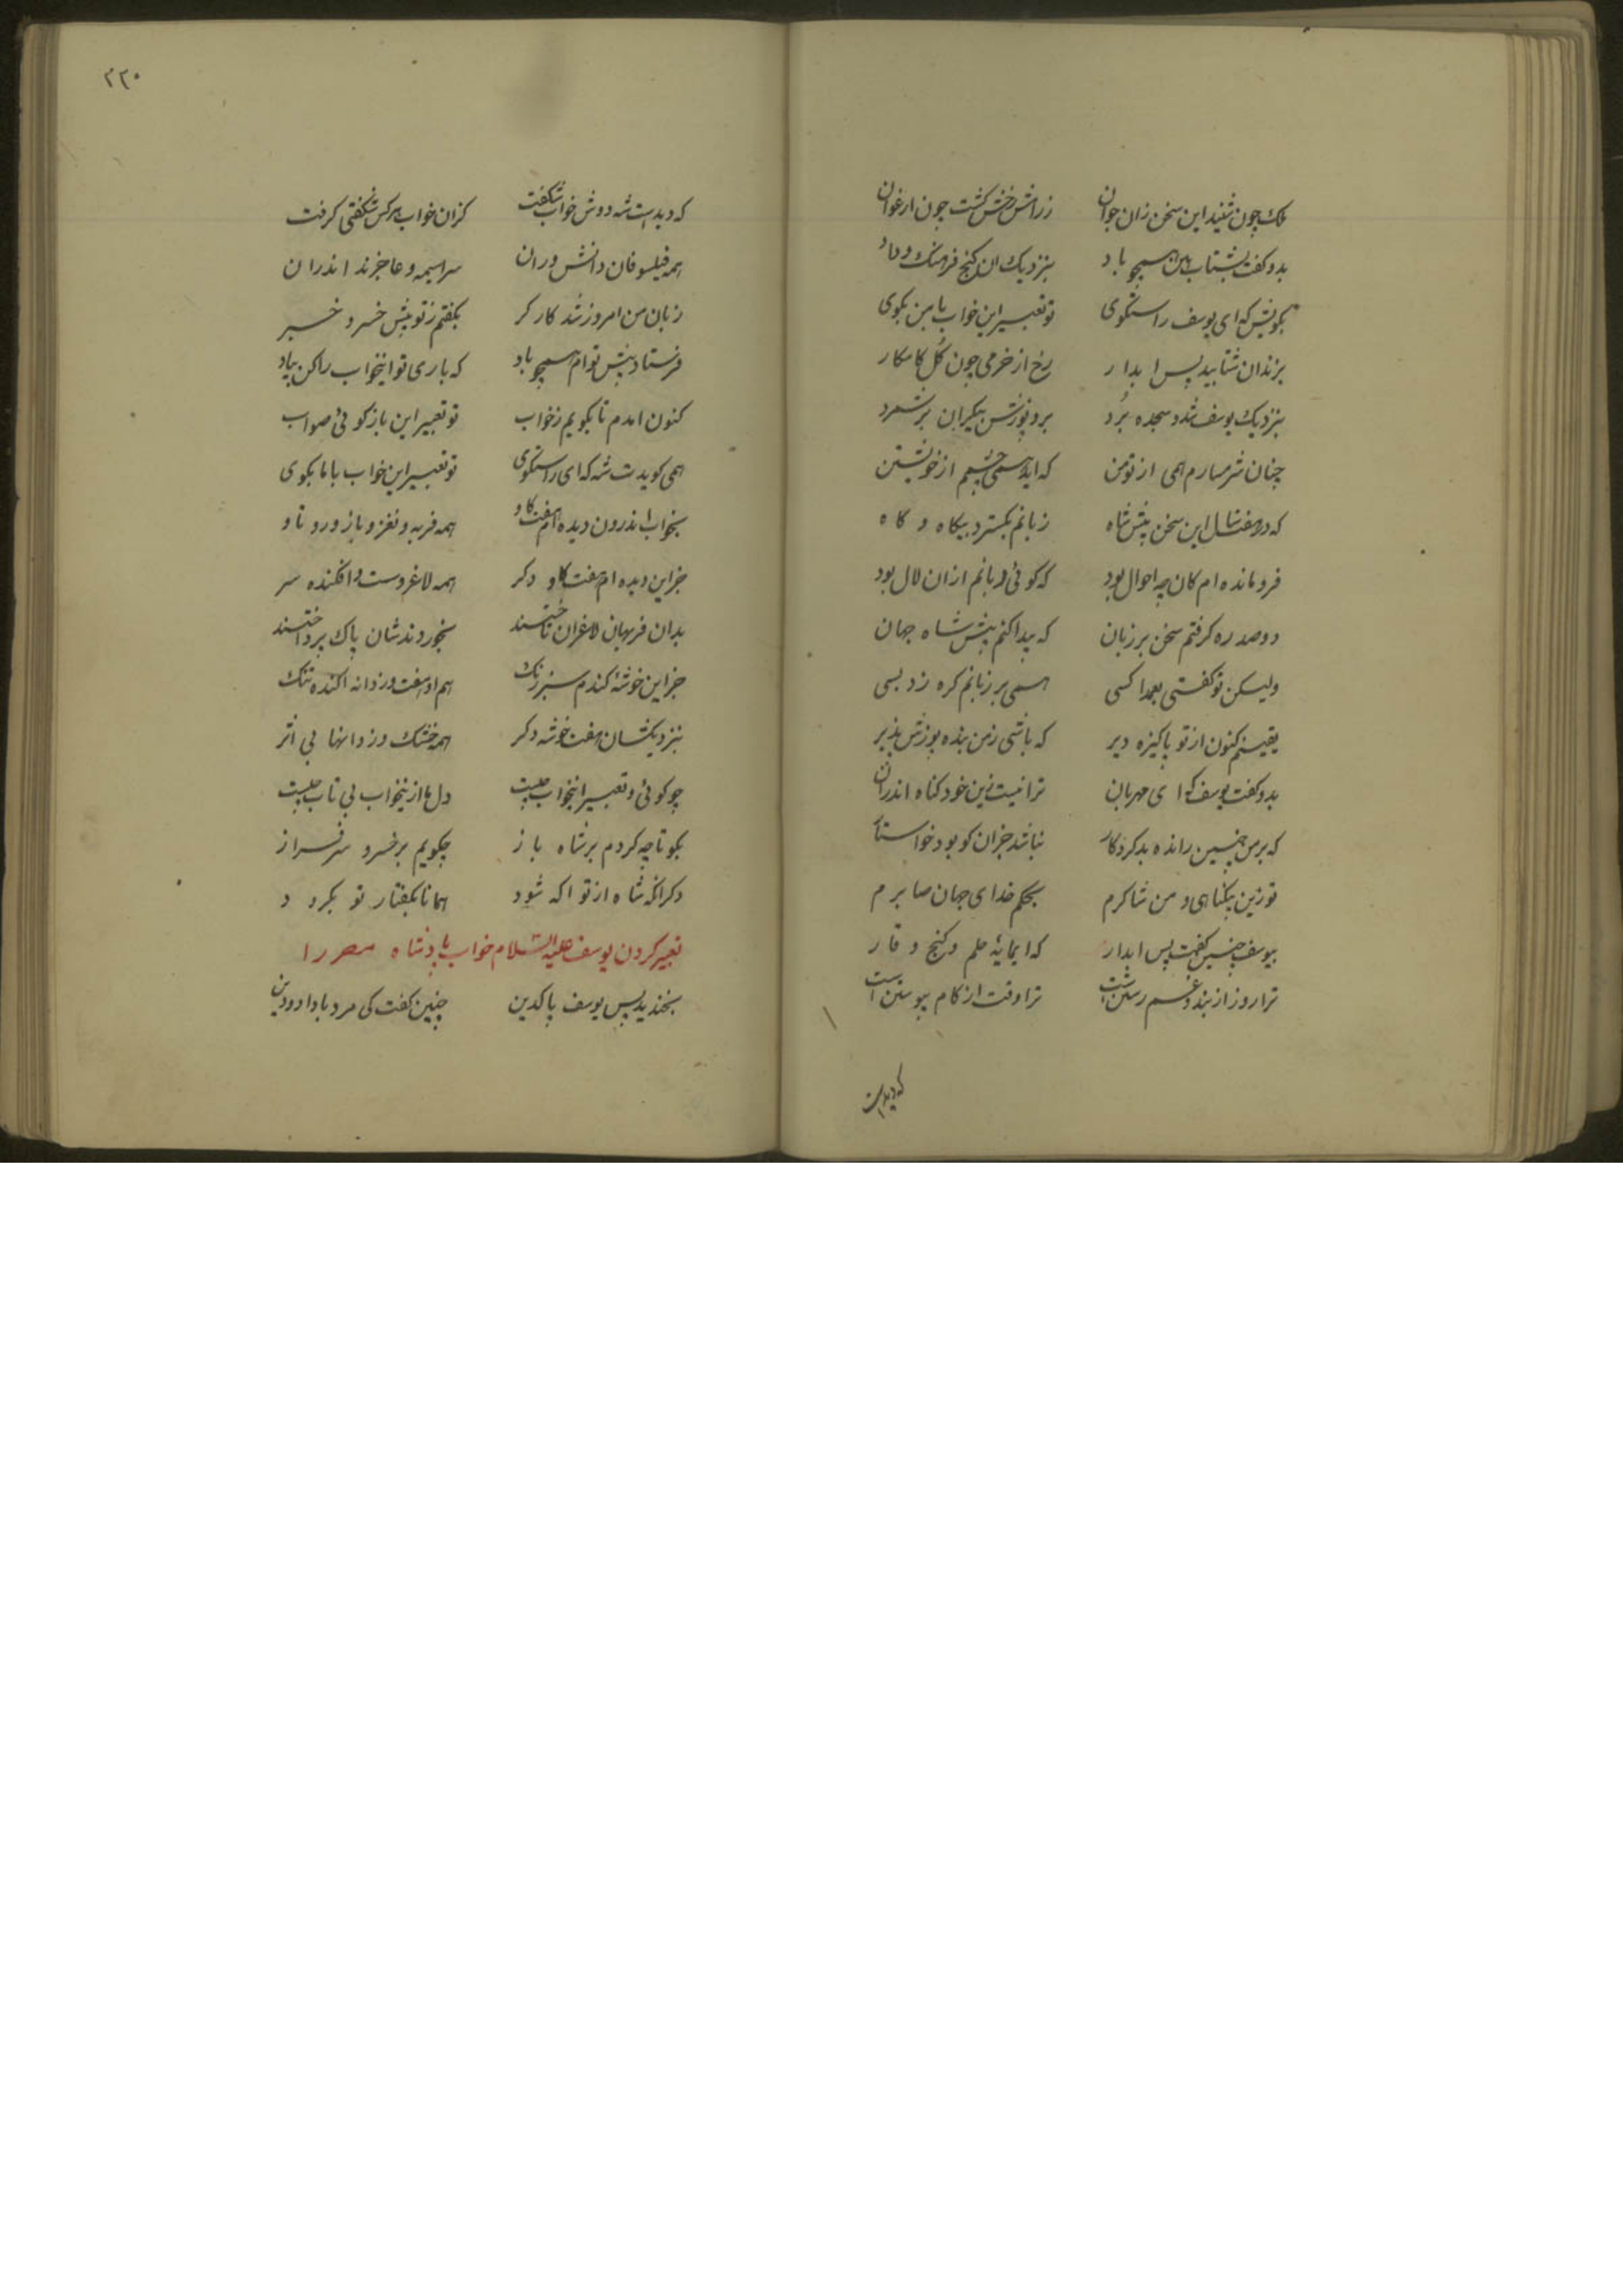 ملک چون شنید این سخن زان جوان زرامش رخش کشت چون ارغوان
بدو کفت بشتاب هین همچو باد بنزدیک ان کنج فرهنک و داد
بکویش که ای یوسف راستکوی تو تعبیر این خواب با من بکوی
بزندان شتابید پس ابدار رخ از خرمی چون کل کامکار
بنزدیک یوسف شد و سجده برد برو پوزش بیکران برشمرد
چنان شرمسارم همی از تو من که اید همی خشمم از خویشتن
که در هفت سال این سخن پیش شاه زبانم نکسترد بیکاه و کاه
فرو مانده ام کان چه احوال بود که کوئی زبانم ازان لال بود
دو صد ره کرفتم سخن بر زبان که پیدا کنم پیش شاه جهان
ولیکن تو کفتی بعمدا کسی همی بر زبانم کره زد بسی
یقینم کنون از تو پاکیزه دیر که باشی زمن بنده پوزش پذیر
بدو کفت یوسف که ای مهربان ترا نیست زین خود کناه اندران
که بر من چنین رانده بد کردکار نباشد جزان کو بود خواستار
تو زین بیکناهی و من شاکرم بحکم خدای جهان صابرم
بیوسف چنین کفت پس ابدار که ای مایهٔ حلم و کنج وقار
ترا روز از بند و غم رستن است ترا وقت از کام پیوستن است
که دیدست
۲۲۰
که دیدست شه دوش خواب شکفت کزان خواب هرکس شکفتی کرفت
همه فیلسوفان دانش وران سراسیمه و عاجزند اندران
زبان من امروز شد کارکر بکفتم زتو پیش خسرو خبر
فرستاد پیش توام همچو باد که باری تو اینخواب را کن بیاد
کنون امدم تا بکویم زخواب تو تعبیر این باز کوئی صواب
همی کویدت شه که ای راستکوی تو تعبیر این خواب با ما بکوی
بخواب اندرون دیده ام هفت کاو همه فربه و نغز و باز ور و تاو
جز این دیده ام هفت کاو دکر همه لاغر و سست و افکنده سر
بدان فربهان لاغران تاختند بخوردندشان پاک پرداختند
جز این خوشهٔ کندم سبز رنک هم او هفت و زدانه اکنده تنک
بنزدیکشان هفت خوشه دکر همه خشک و زدانها بی اثر
چو کوئی و تعبیر اینخواب چیست دل ما از ینخواب بی تاب چیست
بکو تا چه کردم بر شاه باز چکویم بر خسرو سرفراز
دکر انکه شاه از تو اکه شود همانا بکفتار تو بکرود
تعبیر کردن یوسف علیه السلام خواب پادشاه مصر را
بخندید پس یوسف پاکدین چنین کفت کی مرد باداد و دین